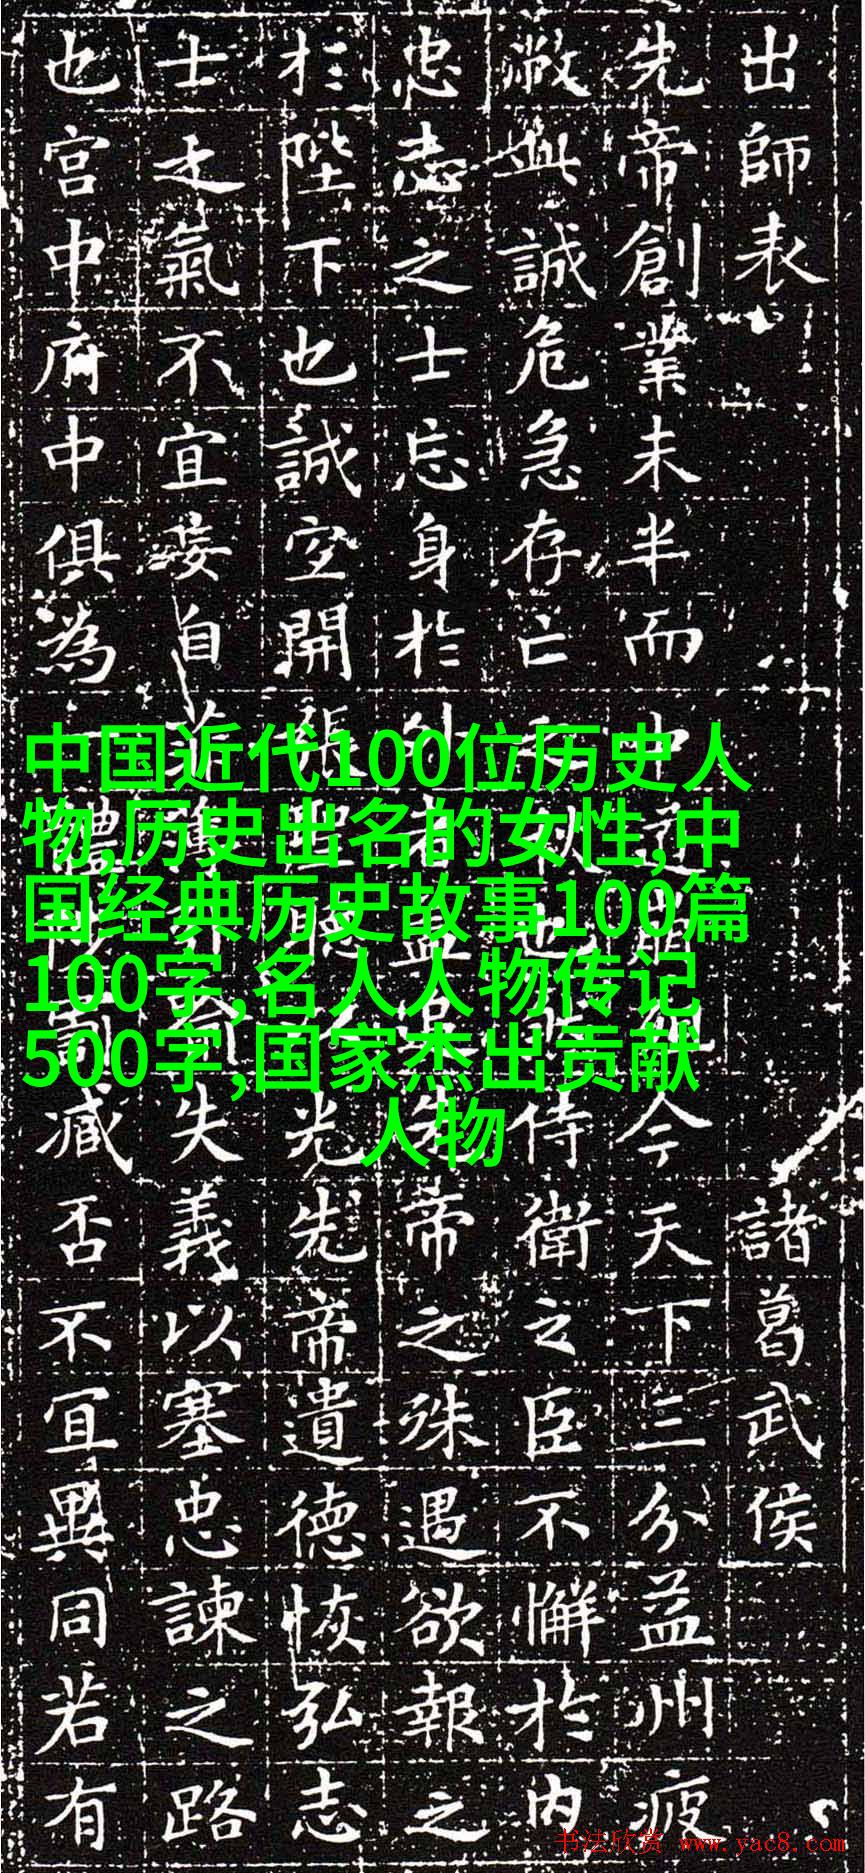 出師表 諸葛武侯
先帝創業未半而中道崩殂今天下三分益州疲
敝此誠危急存亡之秋也然侍衛之臣不懈於內
忠志之士忘身於外者蓋追先帝之殊遇欲報之
於陛下也誠宜開張聖聽以光先帝遺德恢弘志
士之氣不宜妄自菲薄引喻失義以塞忠諫之路
也宮中府中俱為一體陟罰臧否不宜異同若有
中国近代100位历史人
物,历史出名的女性,中
国经典历史故事100篇
100字,名人人物传记
500字,国家杰出贡献
人物
书法欣赏 www.yac8.com